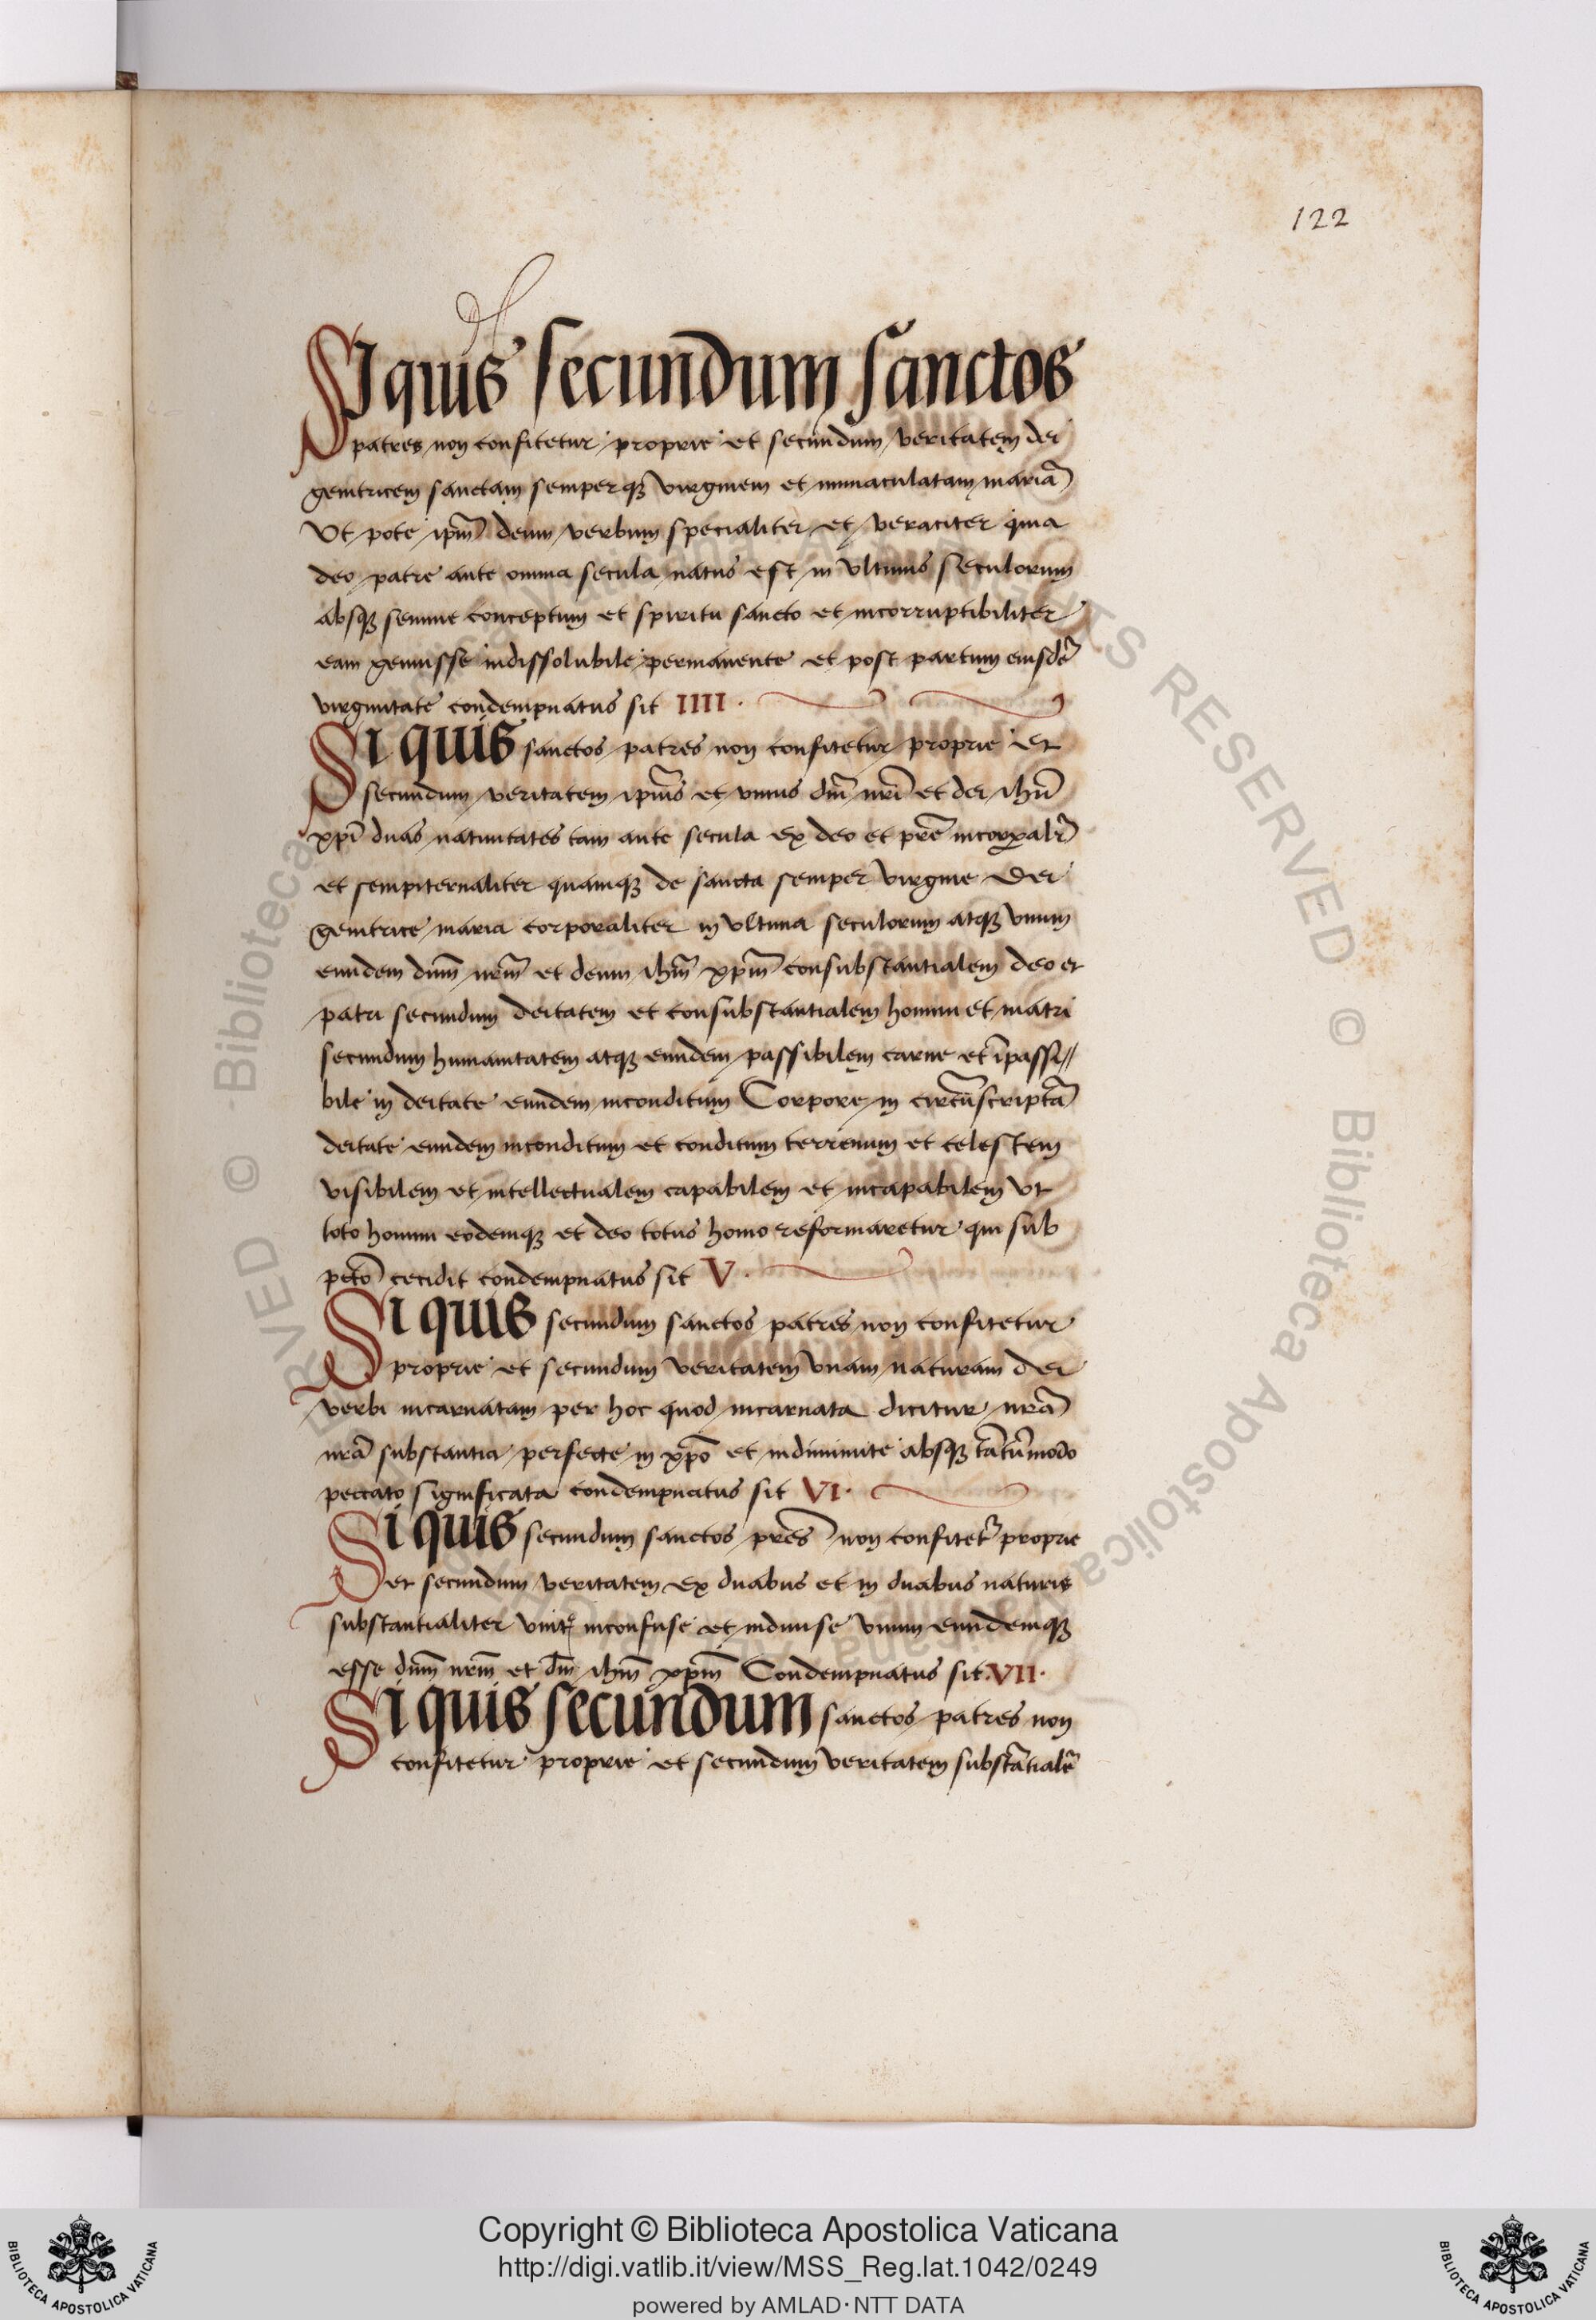 122
SI quis secundum sanctos
patres non confitetur proprie et secundum veritatem dei
genitricem sanctam semperqꝫ virginem et immaculatam mariā
Vt pote ipm̄ deum verbum specialiter et veraciter qui a
deo patre ante omnia secula natus est in vltimis seculorum
absqꝫ semine conceptum et spiritu sancto et incorruptibiliter
eam genuisse indissolubile permanente et post partum eiusdē
virginitate condempnatus sit IIII.
Si quis sanctos patres non confitetur proprie et
secundum veritatem ipīus et vnius dn̄i nr̄i et dei ihū
xpī duas natiuitates tam ante secula ex deo et pr̄e incorꝑalr̄
et sempiternaliter quamqꝫ de sancta semper virgine Dei
genitrice maria corporaliter in vltima seculorum atqꝫ vnum
eundem dnm̄ nrm̄ et deum ihm̄ xpm̄ consubstantialem deo et
patri secundum deitatem et consubstantialem homini et matri
secundum humanitatem atqꝫ eundem passibilem carne et īpassi//
bile in deitate eundem inconditum Corpore in circūscriptā
deitate eundem inconditum et conditum terrenum et celestem
visibilem et intellectualem capabilem et incapabilem vt
toto homini eodemqꝫ et deo totus homo reformaretur qui sub
pctō cecidit condempnatus sit V.
Si quis secundum sanctos patres non confitetur
proprie et secundum veritatem vnam naturam dei
verbi incarnatam per hoc quod incarnata dicitur nrā
nrā substantia perfecte in xpō et indiminute absqꝫ tātūmodo
peccato significata condempnatus sit VI.
Si quis secundum sanctos pr̄es non confitet᷑ proprie
et secundum veritatem ex duabus et in duabus naturis
substantialiter vnit᷑ inconfuse et indiuise vnum eundemqꝫ
esse dnm̄ nrm̄ et dm̄ ihm̄ xpm̄ Condempnatus sit. VII.
Si quis secundum sanctos patres non
confitetur proprie et secundum veritatem substātialr̄
Copyright © Biblioteca Apostolica Vaticana
http://digi.vatlib.it/view/MSS_Reg.lat.1042/0249
powered by AMLAD·NTT DATA
BIBLIOTECA APOSTOLICA VATICANA
BIBLIOTECA APOSTOLICA VATICANA